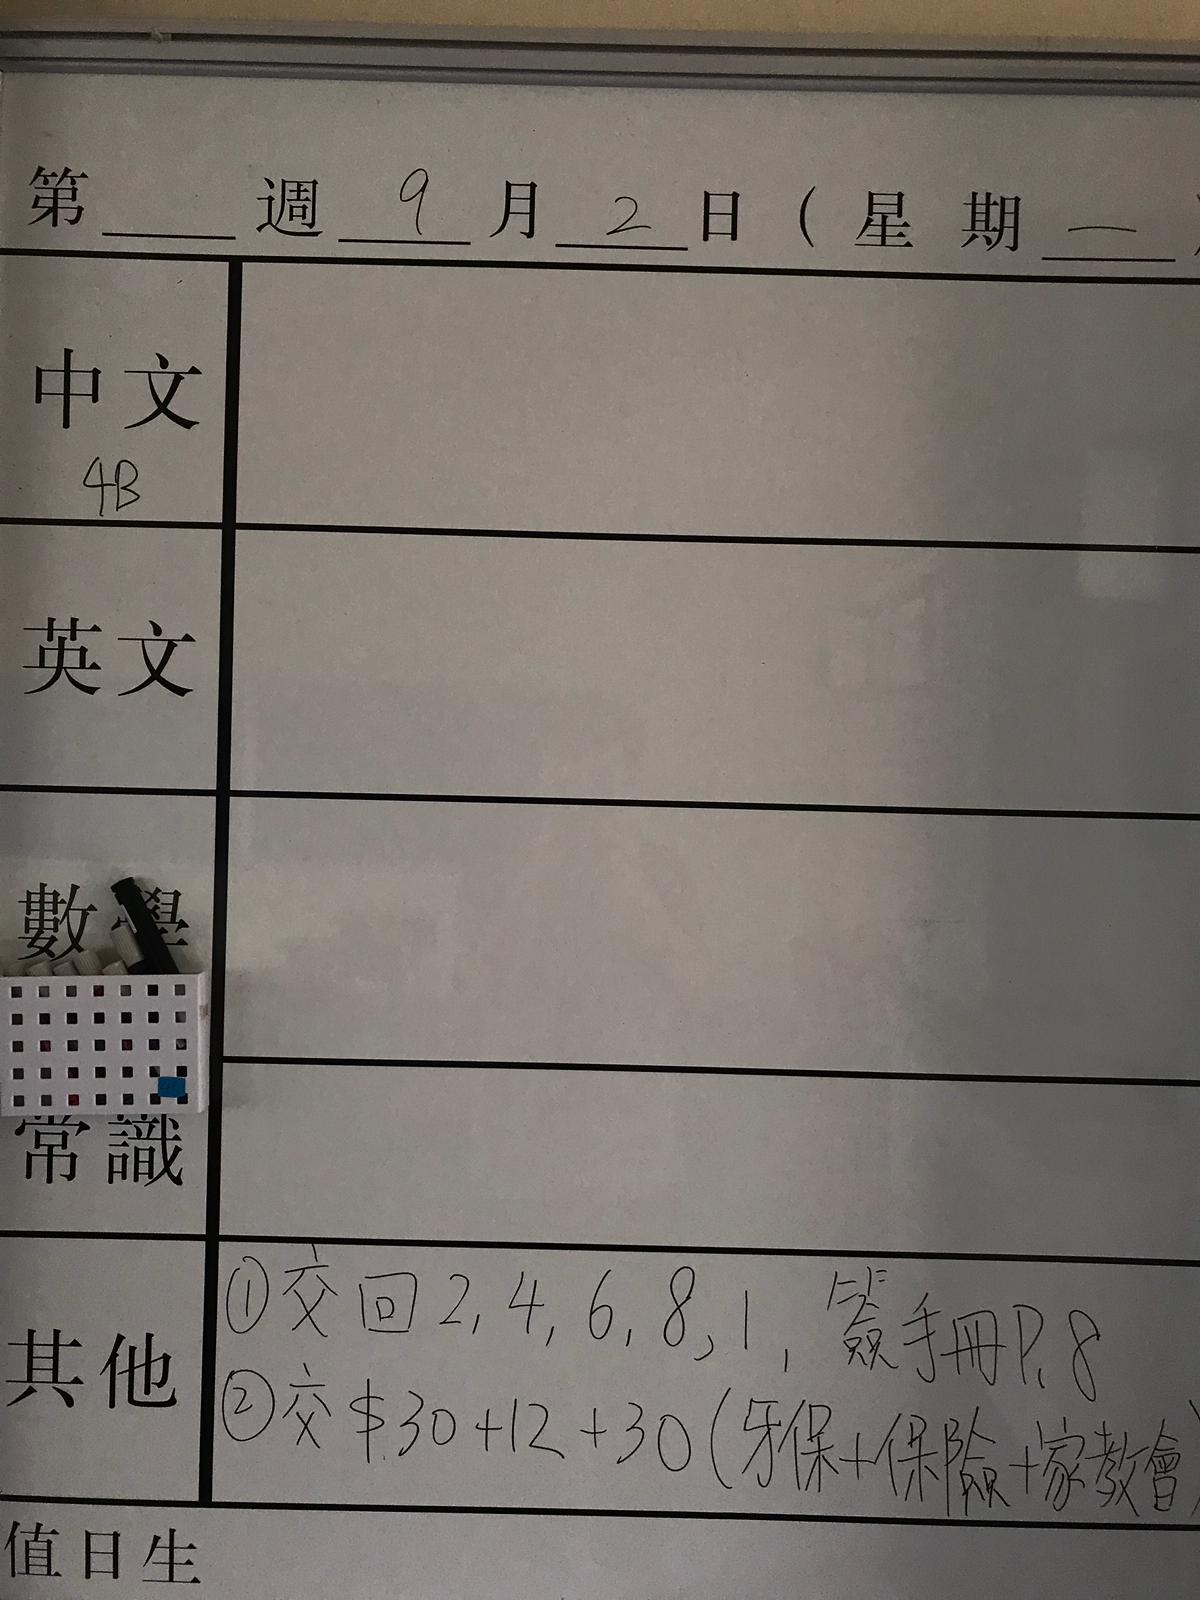 第 週 9 月 2 日 ( 星 期 一 )
中文
4B
英文
數學
常識
其他
①交回2,4,6,8,1,簽手冊P.8
②交$30+12+30(牙保+保險+家教會)
值日生